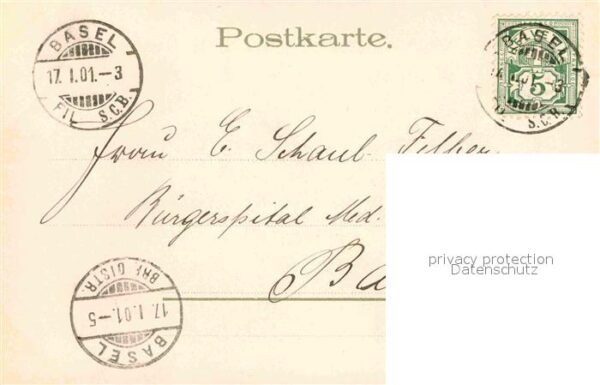 Postkarte.
BASEL
17. I. 01. – 3
FIL S.C.B.
BASEL
5
S.C.B.
Herrn E. Schaub-
Bürgerspital Med.
Ba
privacy protection
Datenschutz
BRF. DISTR.
17. I. 01. – 5
BASEL